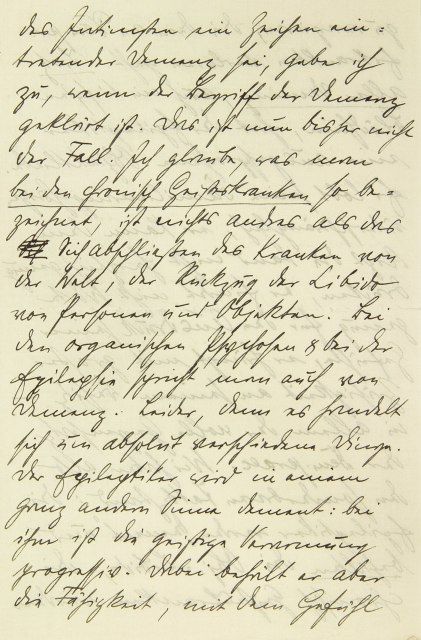 des Intimsten ein Zeichen ein=
tretender Demenz sei, gebe ich
zu, wenn der Begriff der Demenz
geklärt ist. Das ist nun bisher nicht
der Fall. Ich glaube, was man
bei den chronisch Geisteskranken so be=
zeichnet, ist nichts andres als das
Sichabschließen des Kranken von
der Welt, der Rückzug der Libido
von Personen und Objekten. Bei
den organischen Psychosen & bei der
Epilepsie spricht man auch von
Demenz. Leider, denn es handelt
sich um absolut verschiedene Dinge.
Der Epileptiker wird in einem
ganz andern Sinne dement: bei
ihm ist die geistige Verarmung
progressiv. Dabei behält er aber
die Fähigkeit, mit dem Gefühl